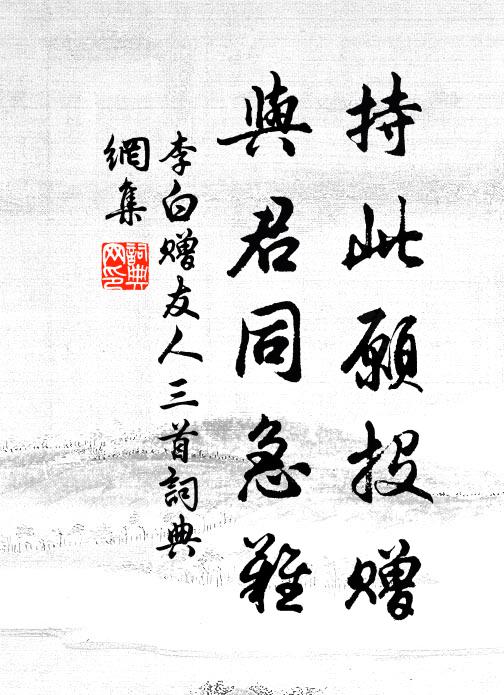 持此願投贈
與君同急難
李白贈友人三首詞典
網集
詞典
网印